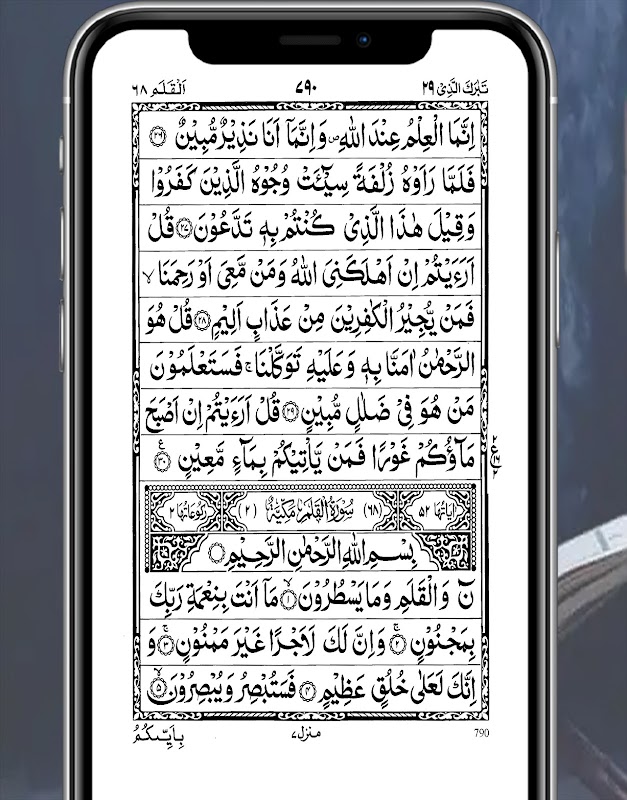 تَبٰرَكَ الَّذِیْ ٢٩ ٧٩٠ اَلْقَلَم ٦٨
اِنَّمَا الْعِلْمُ عِنْدَ اللّٰهِ ۪ وَاِنَّمَاۤ اَنَا نَذِیْرٌ مُّبِیْنٌ ۝٢٦
فَلَمَّا رَاَوْهُ زُلْفَةً سِیْٓـَٔتْ وُجُوْهُ الَّذِیْنَ كَفَرُوْا
وَقِیْلَ هٰذَا الَّذِیْ كُنْتُمْ بِهٖ تَدَّعُوْنَ ۝٢٧ قُلْ
اَرَءَیْتُمْ اِنْ اَهْلَكَنِیَ اللّٰهُ وَمَنْ مَّعِیَ اَوْ رَحِمَنَا ۙ
فَمَنْ یُّجِیْرُ الْكٰفِرِیْنَ مِنْ عَذَابٍ اَلِیْمٍ ۝٢٨ قُلْ هُوَ
الرَّحْمٰنُ اٰمَنَّا بِهٖ وَعَلَیْهِ تَوَكَّلْنَا ۚ فَسَتَعْلَمُوْنَ
مَنْ هُوَ فِیْ ضَلٰلٍ مُّبِیْنٍ ۝٢٩ قُلْ اَرَءَیْتُمْ اِنْ اَصْبَحَ
مَآؤُكُمْ غَوْرًا فَمَنْ یَّاْتِیْكُمْ بِمَآءٍ مَّعِیْنٍ ۝٣٠
اٰیَاتُهَا ٥٢ (٦٨) سُوْرَةُ الْقَلَمِ مَكِّیَّةٌ (٢) رُكُوْعَاتُهَا ٢
بِسْمِ اللّٰهِ الرَّحْمٰنِ الرَّحِیْمِ
نٓ وَالْقَلَمِ وَمَا یَسْطُرُوْنَ ۙ۝١ مَاۤ اَنْتَ بِنِعْمَةِ رَبِّكَ
بِمَجْنُوْنٍ ۚ۝٢ وَاِنَّ لَكَ لَاَجْرًا غَیْرَ مَمْنُوْنٍ ۚ۝٣ وَ
اِنَّكَ لَعَلٰی خُلُقٍ عَظِیْمٍ ۝٤ فَسَتُبْصِرُ وَیُبْصِرُوْنَ ۙ۝٥
790 منزل ٧ بِاَیِّىكُمُ